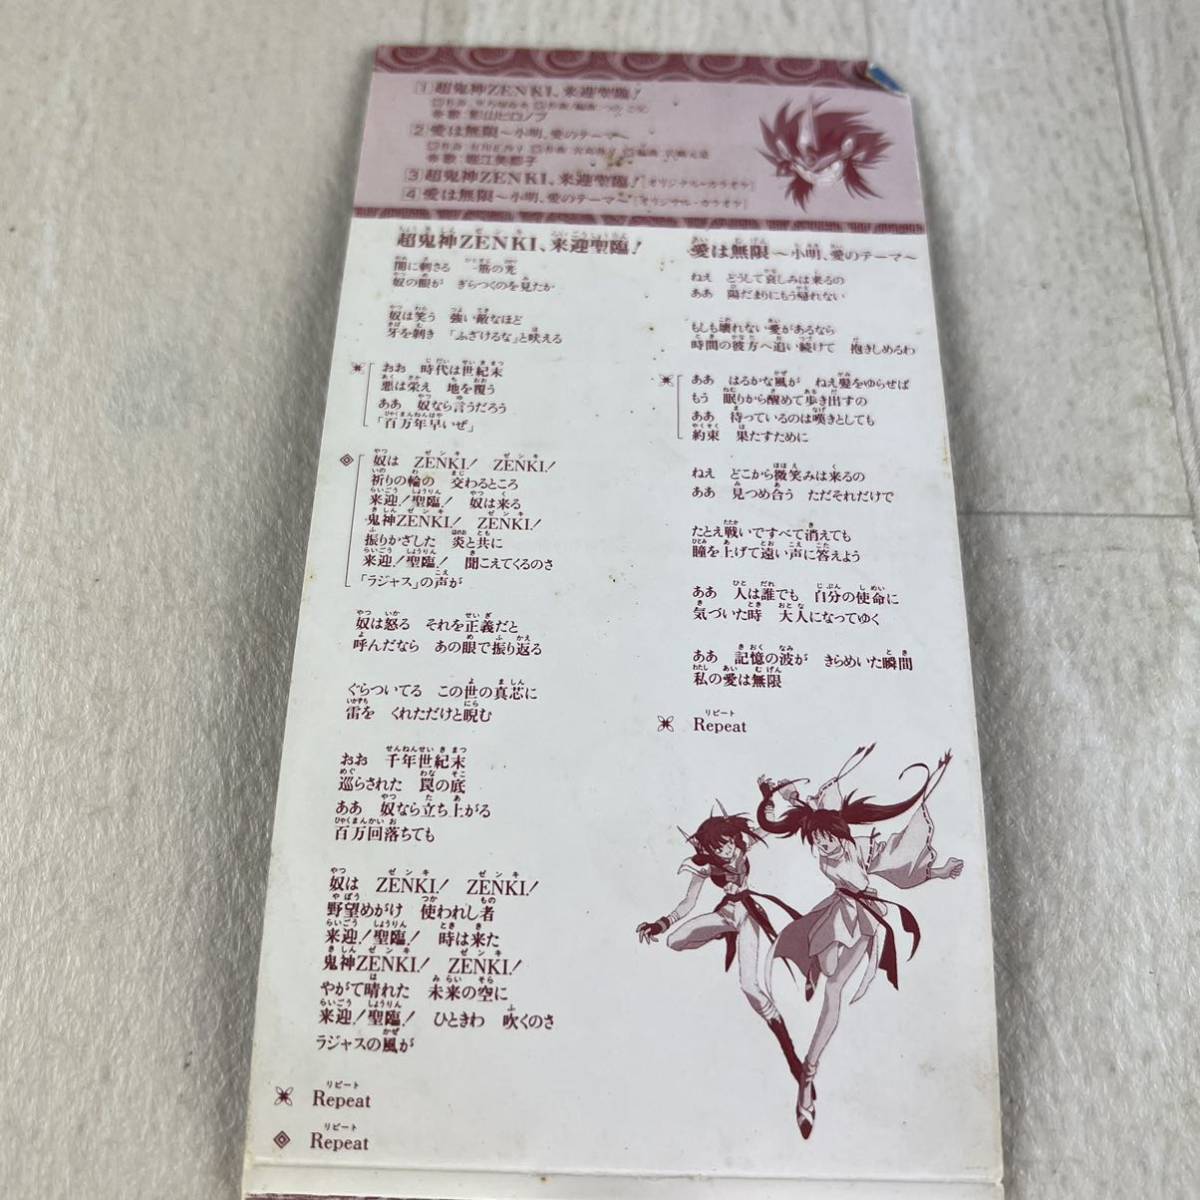 1 超鬼神ZENKI、来迎聖臨!
歌:影山ヒロノブ
2 愛は無限〜小明、愛のテーマ〜
歌:堀江美都子
3 超鬼神ZENKI、来迎聖臨![オリジナル・カラオケ]
4 愛は無限〜小明、愛のテーマ〜[オリジナル・カラオケ]
超鬼神ZENKI、来迎聖臨!
闇に刺さる 一筋の光
奴の眼が ぎらつくのを見たか
奴は笑う 強い敵なほど
牙を剝き 「ふざけるな」と吠える
おお 時代は世紀末
悪は栄え 地を覆う
ああ 奴なら言うだろう
「百万年早いぜ」
奴は ZENKI! ZENKI!
祈りの輪の 交わるところ
来迎!聖臨! 奴は来る
鬼神ZENKI! ZENKI!
振りかざした 炎と共に
来迎!聖臨! 聞こえてくるのさ
「ラジャス」の声が
奴は怒る それを正義だと
呼んだなら あの眼で振り返る
ぐらついてる この世の真芯に
雷を くれただけと睨む
おお 千年世紀末
巡らされた 罠の底
ああ 奴なら立ち上がる
百万回落ちても
奴は ZENKI! ZENKI!
野望めがけ 使われし者
来迎!聖臨! 時は来た
鬼神ZENKI! ZENKI!
やがて晴れた 未来の空に
来迎!聖臨! ひときわ 吹くのさ
ラジャスの風が
リピート
Repeat
リピート
Repeat
愛は無限〜小明、愛のテーマ〜
ねえ どうして哀しみは来るの
ああ 陽だまりにもう帰れない
もしも壊れない愛があるなら
時間の彼方へ追い続けて 抱きしめるわ
ああ はるかな風が ねえ髪をゆらせば
もう 眠りから醒めて歩き出すの
ああ 待っているのは嘆きとしても
約束 果たすために
ねえ どこから微笑みは来るの
ああ 見つめ合う ただそれだけで
たとえ戦いですべて消えても
瞳を上げて遠い声に答えよう
ああ 人は誰でも 自分の使命に
気づいた時 大人になってゆく
ああ 記憶の波が きらめいた瞬間
私の愛は無限
リピート
Repeat